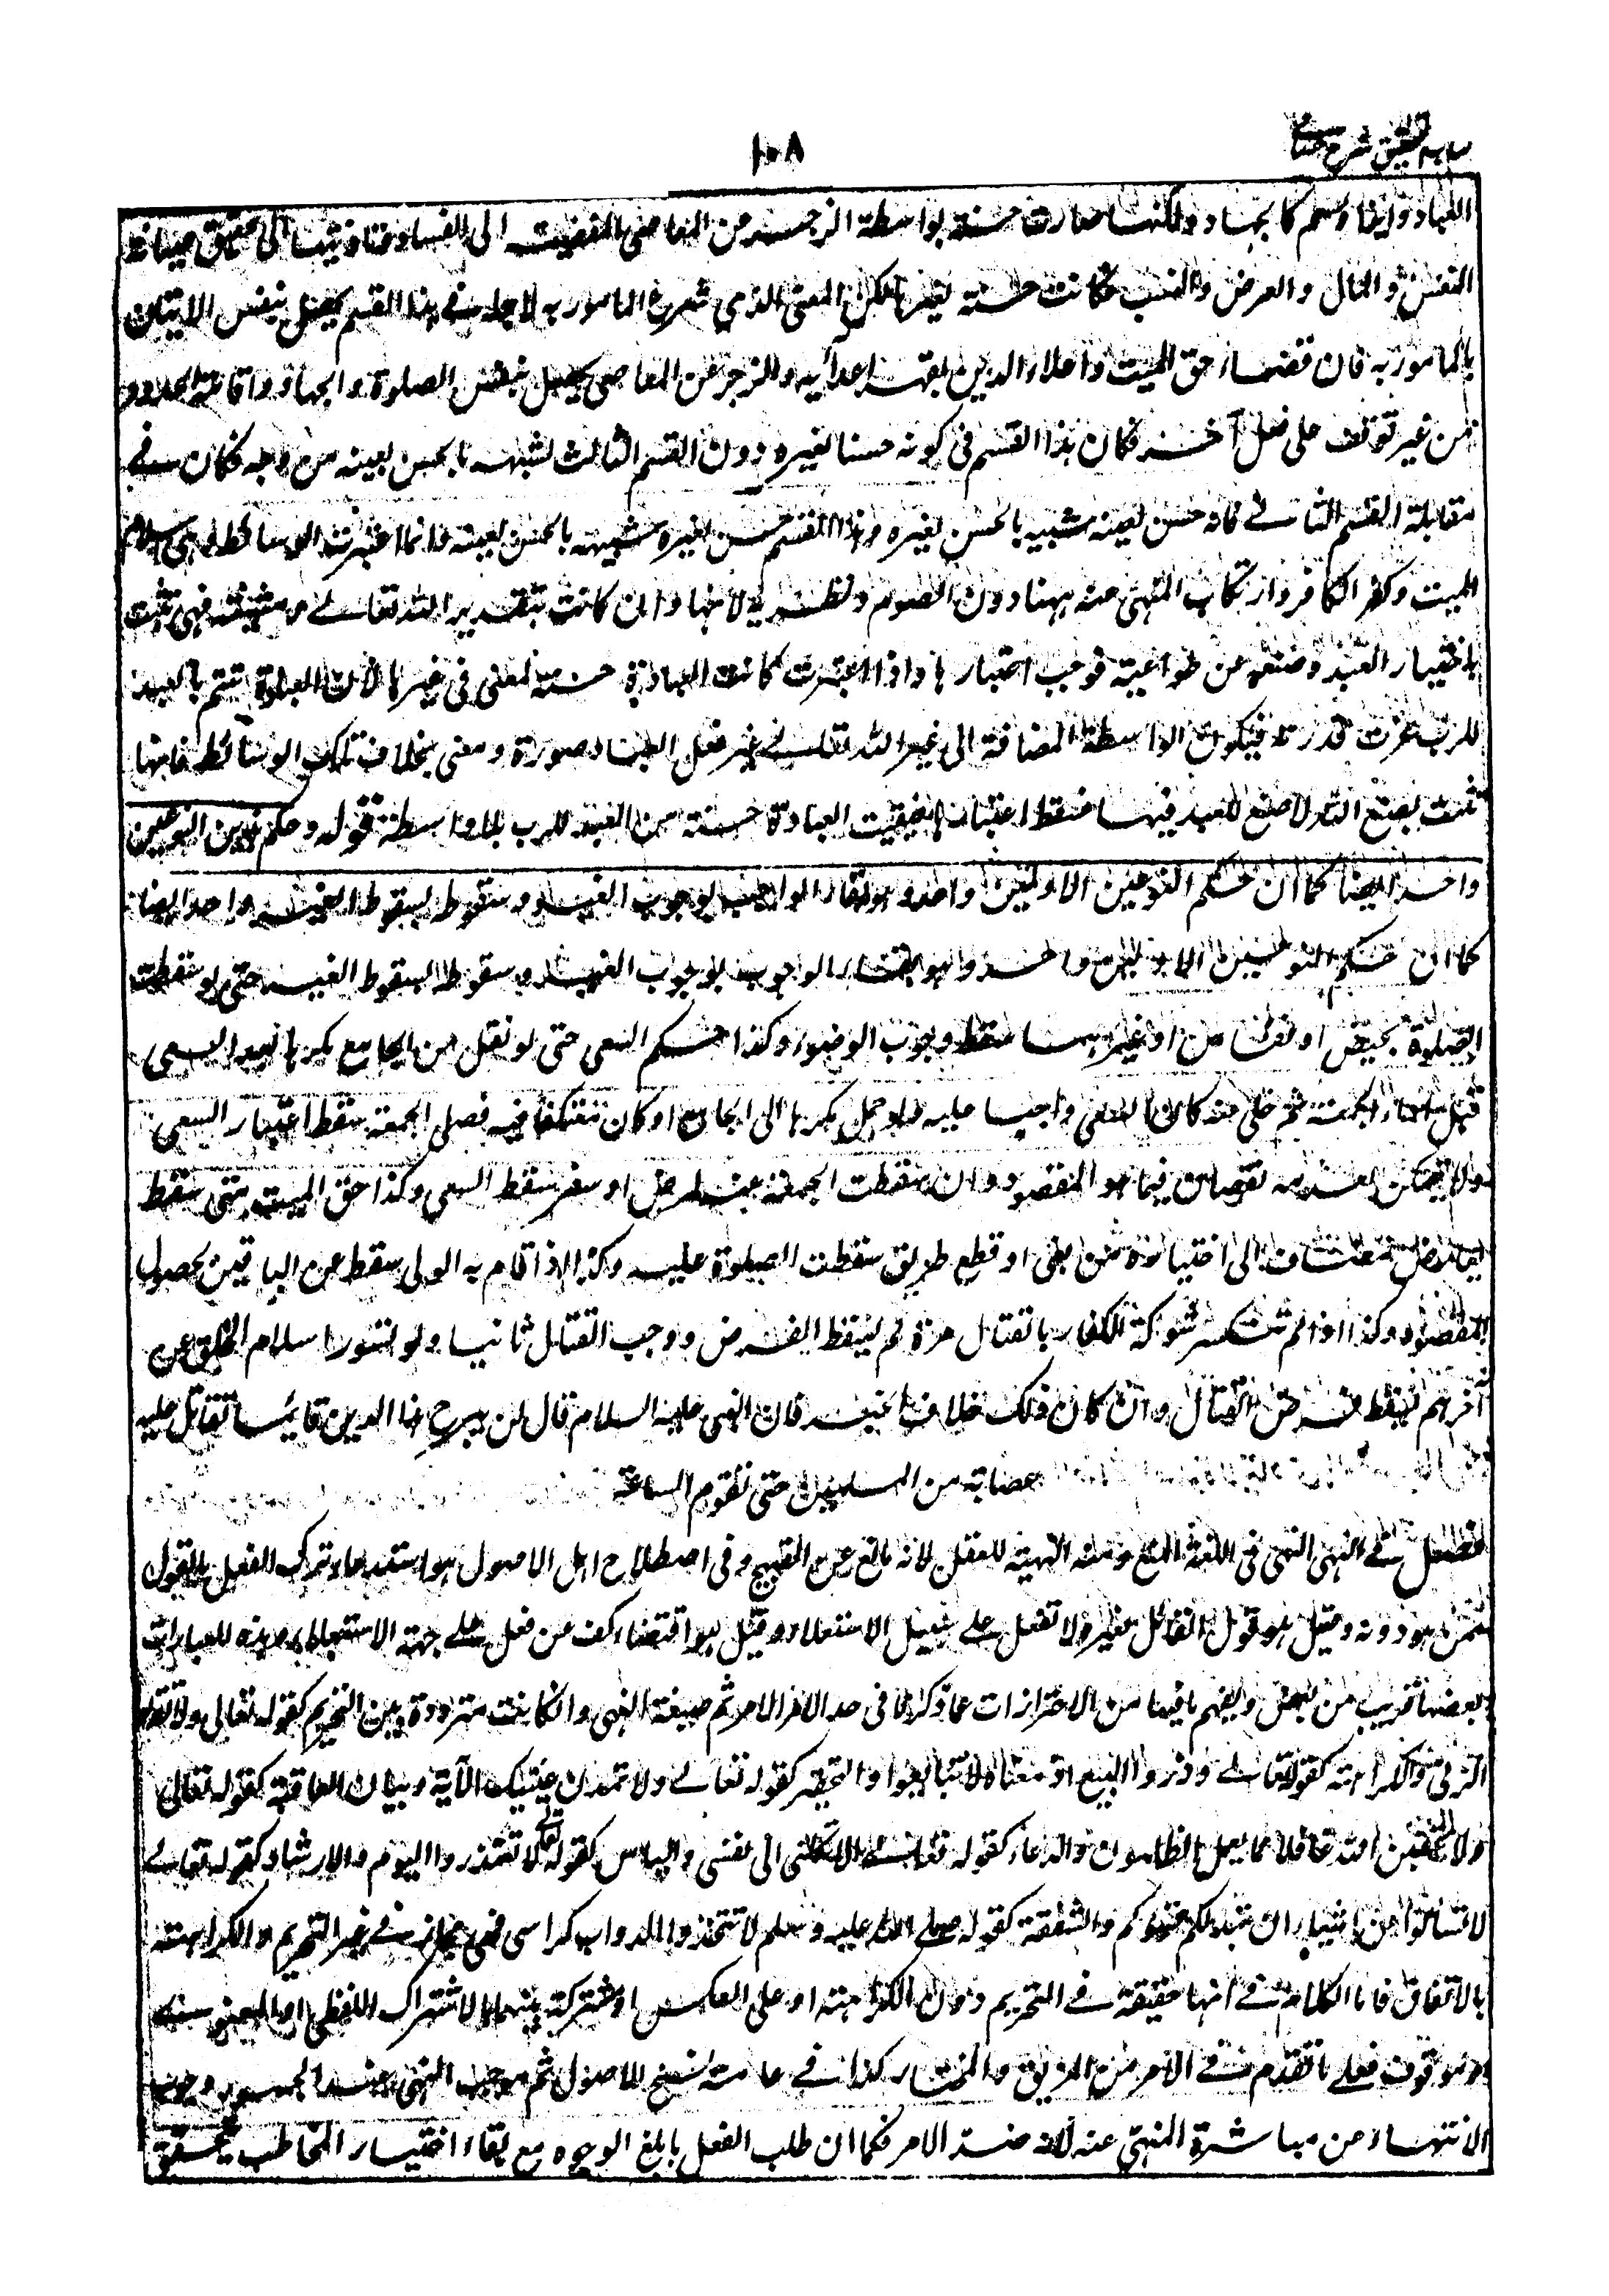 ١٠٨
شرح حسامي
العباد وايذاؤهم كالجهاد ولكنها صارت حسنة بواسطة الزجر عن المعاصي المفضية الى الفساد وتأديتها الى تحقق صيانة
النفس والمال والعرض والنسب فكانت حسنة لغيرها لكن المعنى الذي شرع المامور به لاجله في هذا القسم يحصل بنفس الاتيان
بالمامور به فان قضاء حق الميت واعلاء الدين بقهر اعدائه والزجر عن المعاصي يحصل بنفس الصلوة والجهاد واقامة الحدود
من غير توقف على فعل آخر فكان هذا القسم في كونه حسنا لغيره دون القسم الثالث لشبهه بالحسن لعينه من وجه فكان في
مقابلة القسم الثاني فانه حسن لعينه شبيه بالحسن لغيره وهذا القسم حسن لغيره شبيه بالحسن لعينه وانما اعتبرت الوسائط وهي اسلام
الميت وكفر الكافر وارتكاب المنهي عنه ههنا دون الصوم ونظيريه لانها وان كانت بتقدير الله تعالى ومشيته فهي تثبت
باختيار العبد وصنعه عن طواعية فوجب اعتبارها واذا اعتبرت كانت العبادة حسنة لمعنى في غيرها لان العبادة تتم بالعبد
للرب عزت قدرته فيكون الواسطة المضافة الى غير الله تعالى غير فعل العباد صورة ومعنى بخلاف تلك الوسائط فانها
تثبت بصنع الله لا صنع للعبد فيها فسقط اعتبارها فبقيت العبادة حسنة من العبد للرب بلا واسطة قوله وحكم هذين النوعين
واحد ايضا كما ان حكم النوعين الاولين واحد وهو بقاء الواجب بوجوب الغير وسقوطه بسقوط الغير واحد ايضا
كما ان حكم النوعين الاولين واحد وهو بقاء الوجوب بوجوب الغير وسقوطه بسقوط الغير حتى لو سقطت
الصلوة بحيض او نفاس او غيرهما سقط وجوب الوضوء وكذا حكم السعي حتى لو نقل من الجامع مكرها بعد السعي
قبل اداء الجمعة ثم خلى عنه كان السعي واجبا عليه ولو حمل مكرها الى الجامع او كان معتكفا فيه فصلى الجمعة سقط اعتبار السعي
ولا يتمكن بعدمه نقصان فيما هو المقصود وان سقطت الجمعة عنه لمرض او سفر سقط السعي وكذا حق الميت متى سقط
بعارض مضاف الى اختياره من بغي او قطع طريق سقطت الصلوة عليه وكذا اذا قام به الولي سقط عن الباقين لحصول
المقصود وكذا اذا لم تنكسر شوكة الكفار بالقتال مرة لم يسقط الفرض ووجب القتال ثانيا ولو تصور اسلام الخلق عن
آخرهم لسقط فرض القتال وان كان ذلك خلاف الخبر فان النبي عليه السلام قال لن يبرح هذا الدين قائما تقاتل عليه
عصابة من المسلمين حتى تقوم الساعة
فصل في النهي النهي في اللغة المنع ومنه النهية للعقل لانه مانع عن القبيح وفي اصطلاح اهل الاصول هو استدعاء ترك الفعل بالقول
ممن هو دونه وقيل هو قول القائل لغيره لا تفعل على سبيل الاستعلاء وقيل هو اقتضاء كف عن فعل على جهة الاستعلاء وهذه العبارات
بعضها قريب من بعض ويفهم ما فيها من الاحترازات عما ذكرنا في حد الامر ثم صيغة النهي وان كانت مترددة بين التحريم كقوله تعالى ولا تقربوا
الزنى والكراهة كقوله تعالى وذروا البيع اذ معناه لا تبايعوا والتحقير كقوله تعالى ولا تمدن عينيك الآية وبيان العاقبة كقوله تعالى
ولا تحسبن الله غافلا عما يعمل الظالمون والدعاء كقوله لا تكلني الى نفسي والياس كقوله تعالى لا تعتذروا اليوم والارشاد كقوله تعالى
لا تسألوا عن اشياء ان تبد لكم تسؤكم والشفقة كقوله صلى الله عليه وسلم لا تتخذوا الدواب كراسي فهي مجاز في غير التحريم والكراهة
بالاتفاق فاما الكلام في انها حقيقة في التحريم دون الكراهة او على العكس او مشتركة بينهما بالاشتراك اللفظي او المعنوي
او موقوف فعلى ما تقدم في الامر من المزيف والمختار كذا في عامة نسخ الاصول ثم موجب النهي عند الجمهور وجوب
الانتهاء عن مباشرة المنهي عنه لانه ضد الامر فكما ان طلب الفعل بابلغ الوجوه مع بقاء اختيار المخاطب يتحقق